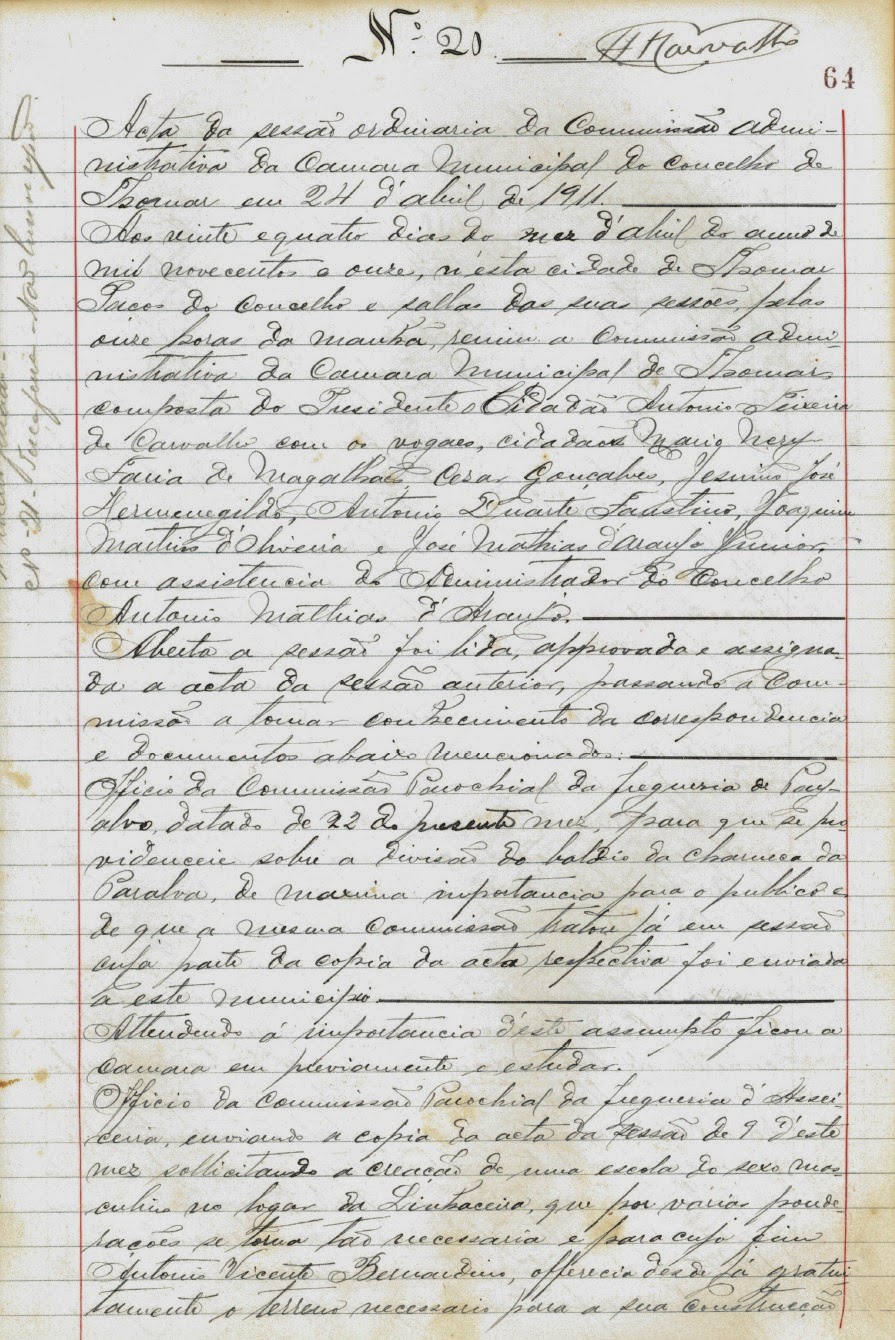 Nº 20
64
Acta da sessão ordinaria da Commissão admi-
nistrativa da Camara Municipal do concelho de
Thomar em 24 d'abril de 1911.
Aos vinte e quatro dias do mez d'abril do anno de
mil novecentos e onze, n'esta cidade de Thomar
Paços do Concelho e sallas das suas sessões, pelas
onze horas da manhã, reuniu a Commissão admi-
nistrativa da Camara Municipal de Thomar,
composta do Presidente o Cidadão Antonio Teixeira
de Carvalho com os vogaes, cidadãos Mario Nery
Faria de Magalhães, Cesar Gonçalves, Jesuino José
Hermenegildo, Antonio Duarte Faustino, Joaquim
Martins d'Oliveira e José Mathias d'Araujo Junior,
com assistencia do Administrador do Concelho
Antonio Mathias d'Araujo.
Aberta a sessão foi lida, approvada e assigna-
da a acta da sessão anterior, passando a Com-
missão a tomar conhecimento da correspondencia
e documentos abaixo mencionados:
Officio da Commissão Parochial da freguezia de Pay-
alvo, datado de 22 do presente mez, para que se pro-
videnceie sobre a divisão do baldio da charneca da
Paralva, de maxima importancia para o publico e
de que a mesma Commissão tratou já em sessão
cuja parte da copia da acta respectiva foi enviada
a este municipio.
Attendendo á importancia d'este assumpto ficou a
camara em previamente o estudar.
Officio da Commissão Parochial da freguezia d'Assei-
ceira, enviando a copia da acta da sessão de 9 d'este
mez sollicitando a creação de uma escola do sexo mas-
culino no logar da Linhaceira, que por várias ponde-
rações se torna tão necessaria e para cujo fim
Antonio Vicente Bernardino, offerecia desde já gratui
tamente o terreno necessario para a sua construcção